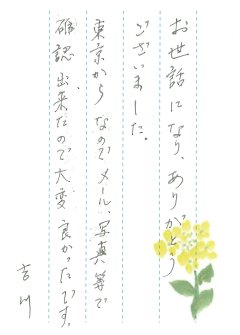 お世話になり、ありがとう
ございました。
東京からなのでメール、写真等で
確認出来たので大変良かったです。
吉川